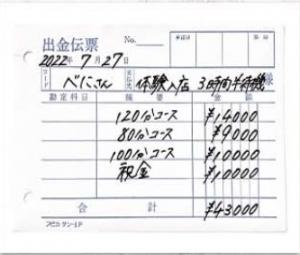 出金伝票 No.
2022年 7月27日
コード べにさん 支払先 体験入店 3時間半待機 様
勘定科目 摘要 金額
120分コース ¥14000
80分コース ¥9000
100分コース ¥10000
税金 ¥10000
合計 ¥43000